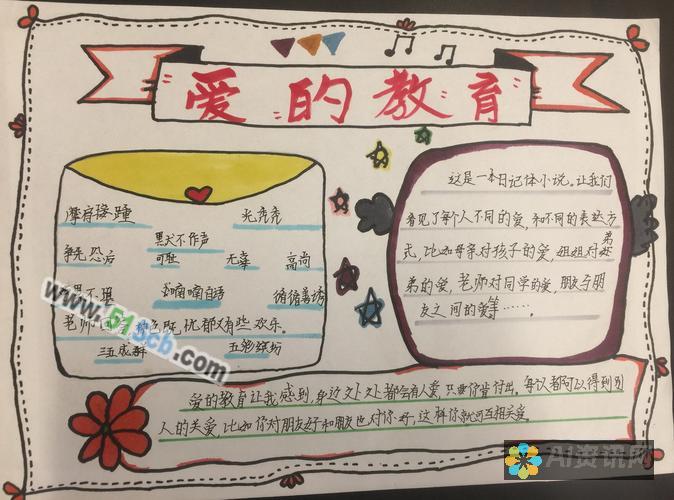 爱的教育
摩肩接踵 光秃秃
争先恐后 默不作声 可耻 无辜 高尚
喃喃自语 循循善诱
老师 既忧郁又有些欢乐。
三五成群 五彩缤纷
这是一本日记体小说。让我们
看见了每个人不同的爱,和不同的表达方
式,比如母亲对孩子的爱,姐姐对弟
弟的爱,老师对同学的爱,朋友与朋
友之间的爱等……。
爱的教育让我感到,身边处处都会有人爱,只要你肯付出。每次都可以得到别
人的关爱,比如你对朋友好和朋友也对你好,这样你就可互相关爱。
www.51scb.com
AI资讯网